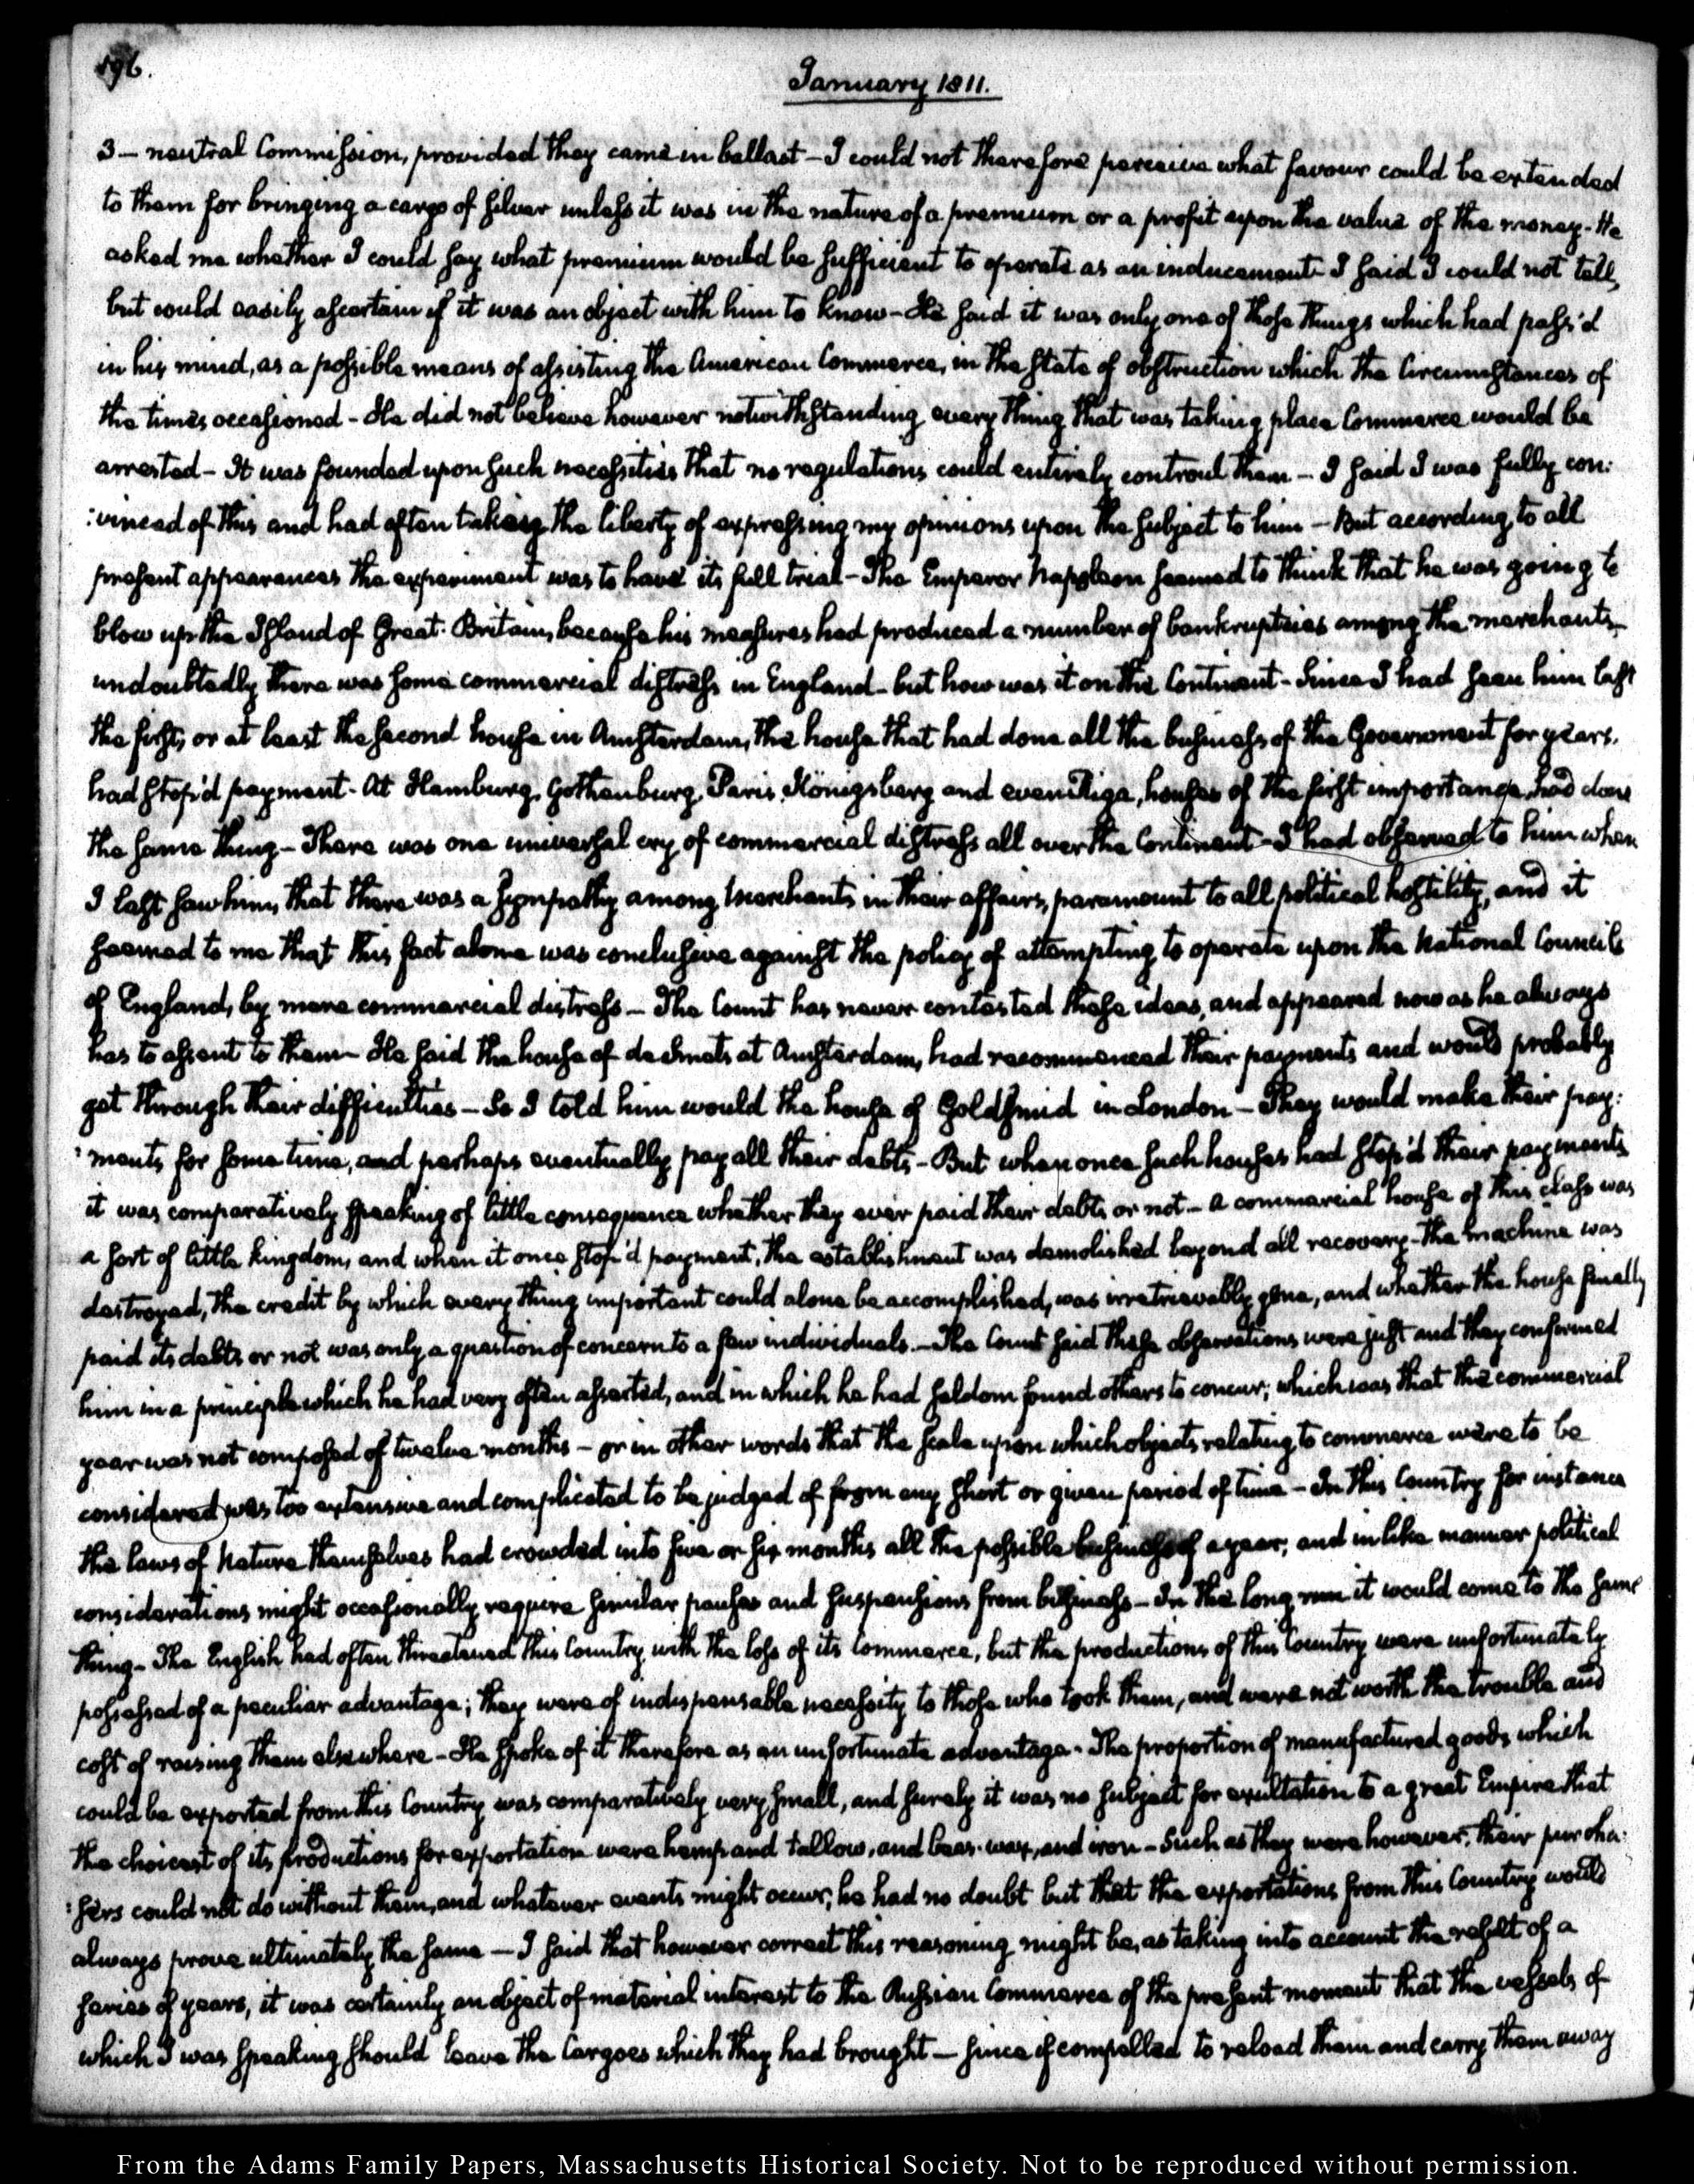 196.
January 1811.
3 — neutral Commission, provided they came in ballast — I could not therefore perceive what favour could be extended
to them for bringing a cargo of silver unless it was in the nature of a premium or a profit upon the value of the money. He
asked me whether I could say what premium would be sufficient to operate as an inducement. I said I could not tell,
but could easily ascertain if it was an object with him to know — He said it was only one of those things which had pass'd
in his mind, as a possible means of assisting the American Commerce, in the state of obstruction which the Circumstances of
the times occasioned — He did not believe however notwithstanding every thing that was taking place Commerce would be
arrested — It was founded upon such necessities that no regulations could entirely controul them — I said I was fully con:
:vinced of this and had often taken the liberty of expressing my opinions upon the subject to him — But according to all
present appearances the experiment was to have its full trial — The Emperor Napoleon seemed to think that he was going to
blow up the Island of Great-Britain, because his measures had produced a number of bankruptcies among the merchants —
undoubtedly there was some commercial distress in England — but how was it on the Continent — Since I had seen him last
the first, or at least the second house in Amsterdam, the house that had done all the business of the Government for years,
had stop'd payment — At Hamburg, Gothenburg, Paris, Königsberg and even Riga, houses of the first importance, had done
the same thing — There was one universal cry of commercial distress all over the Continent — I had observed to him when
I last saw him, that there was a sympathy among Merchants in their affairs, paramount to all political hostility, and it
seemed to me that this fact alone was conclusive against the policy of attempting to operate upon the National Councils
of England, by mere commercial distress — The Count has never contested these ideas, and appeared now as he always
has to assent to them — He said the house of de Smets at Amsterdam, had recommenced their payments and would probably
get through their difficulties — So I told him would the house of Goldsmid in London — They would make their pay:
:ments for some time, and perhaps eventually pay all their debts — But when once such houses had stop'd their payments
it was comparatively speaking of little consequence whether they ever paid their debts or not — A commercial house of this class was
a sort of little kingdom, and when it once stop'd payment, the establishment was demolished beyond all recovery — The machine was
destroyed, the credit by which every thing important could alone be accomplished, was irretrievably gone, and whether the house finally
paid its debts or not was only a question of concern to a few individuals. — The Count said these observations were just and they confirmed
him in a principle which he had very often asserted, and in which he had seldom found others to concur; which was that the commercial
year was not composed of twelve months — or in other words that the scale upon which objects relating to commerce were to be
considered was too extensive and complicated to be judged of from any short or given period of time — In this Country for instance
the laws of Nature themselves had crowded into five or six months all the possible business of a year; and in like manner political
considerations might occasionally require similar pauses and suspensions from business — In the long run it would come to the same
thing — The English had often threatened this Country with the loss of its Commerce, but the productions of this Country were unfortunately
possessed of a peculiar advantage; they were of indispensable necessity to those who took them, and were not worth the trouble and
cost of raising them elsewhere — He spoke of it therefore as an unfortunate advantage — The proportion of manufactured goods which
could be exported from this Country was comparatively very small, and surely it was no subject for exultation to a great Empire that
the choicest of its productions for exportation were hemp and tallow, and bees-wax, and iron — Such as they were however, their purcha:
:sers could not do without them, and whatever events might occur, he had no doubt but that the exportations from this Country would
always prove ultimately the same — I said that however correct this reasoning might be, as taking into account the result of a
series of years, it was certainly an object of material interest to the Russian Commerce of the present moment that the vessels of
which I was speaking should leave the Cargoes which they had brought — since if compelled to reload them and carry them away
From the Adams Family Papers, Massachusetts Historical Society. Not to be reproduced without permission.